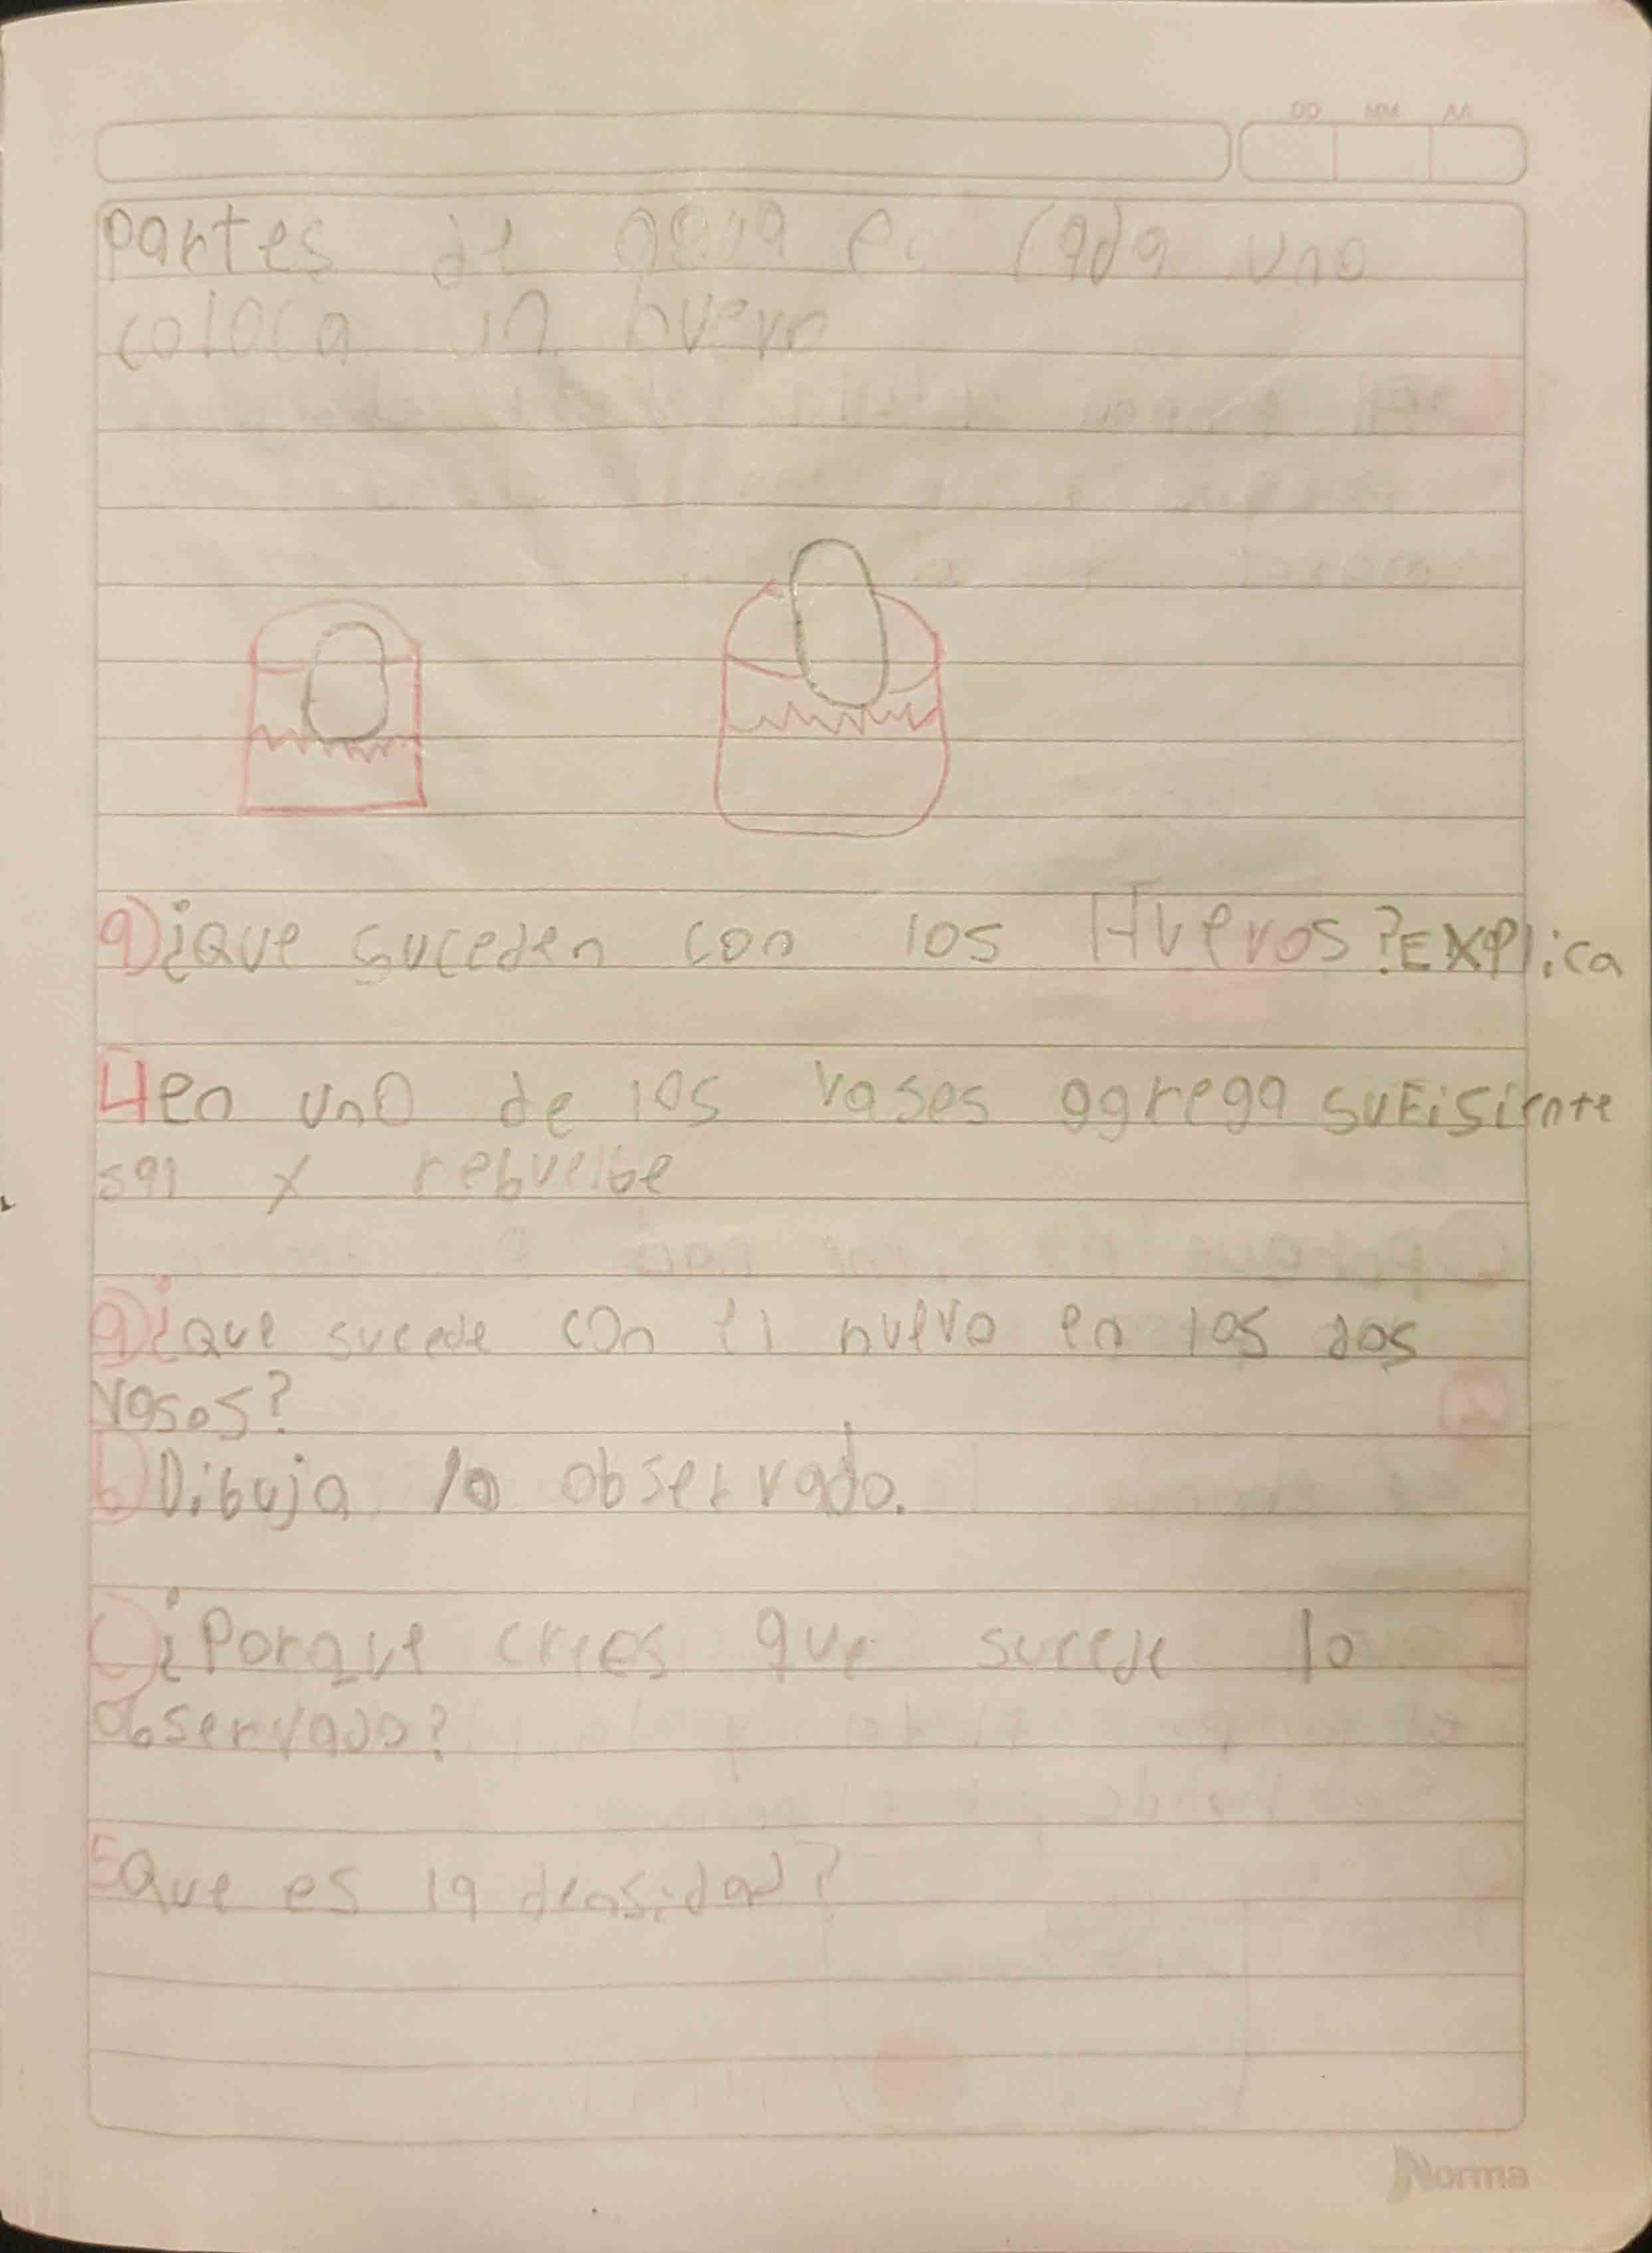 DD MM AA
partes de agua en cada uno
coloca un huevo
a) ¿que suceden con los Huevos? EXPlica
4 en uno de los vasos agrega sufisiente
sal y rebuelbe
a) ¿que sucede con el huevo en los dos
vasos?
b) Dibuja lo observado.
c) ¿Porque crees que sucede lo
observado?
5 Que es la densidad?
Norma